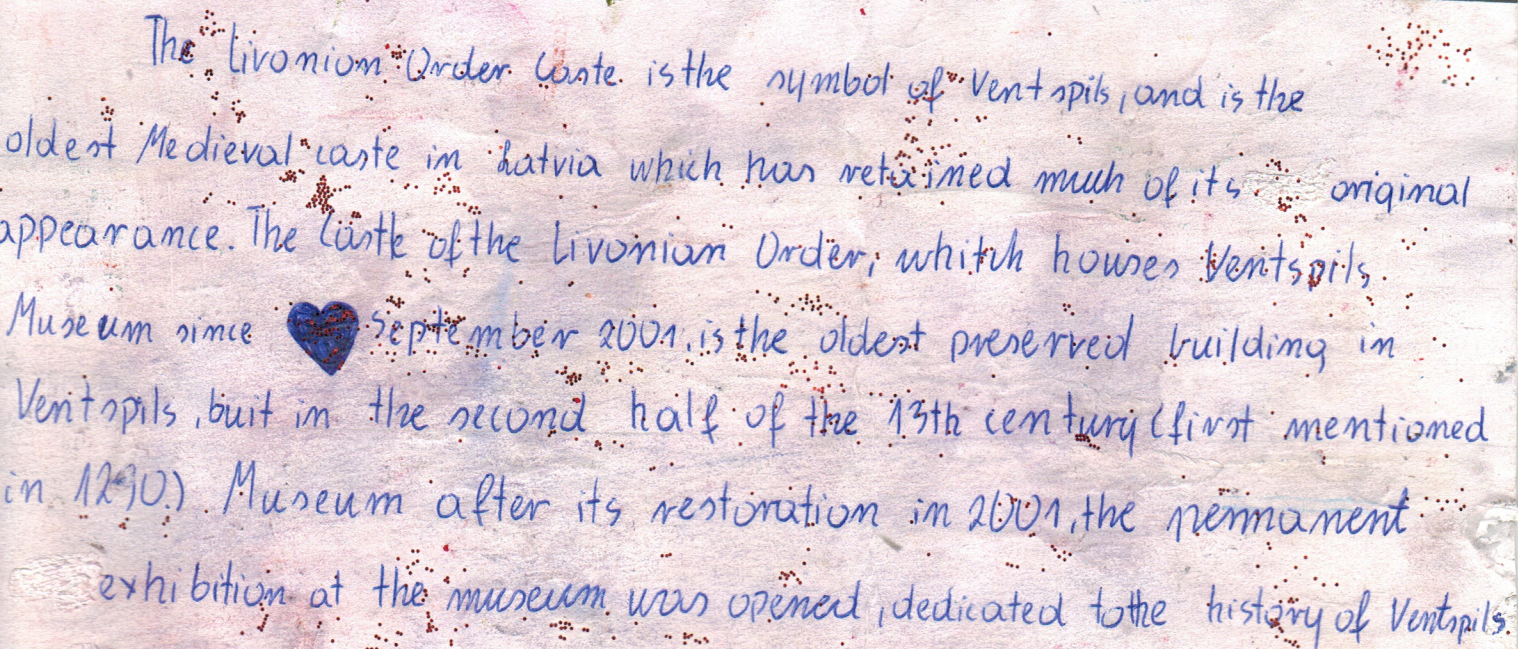 The Livonion Order Caste is the symbol of Ventspils, and is the
oldest Medieval caste in Latvia which has retained much of its original
appearance. The Castle of the Livonian Order, whitch houses Ventspils
Museum since September 2001. is the oldest preserved building in
Ventspils, buit in the second half of the 13th century (first mentioned
in 1290.) Museum after its restoration in 2001, the permanent
exhibition at the museum was opened, dedicated to the history of Ventspils.